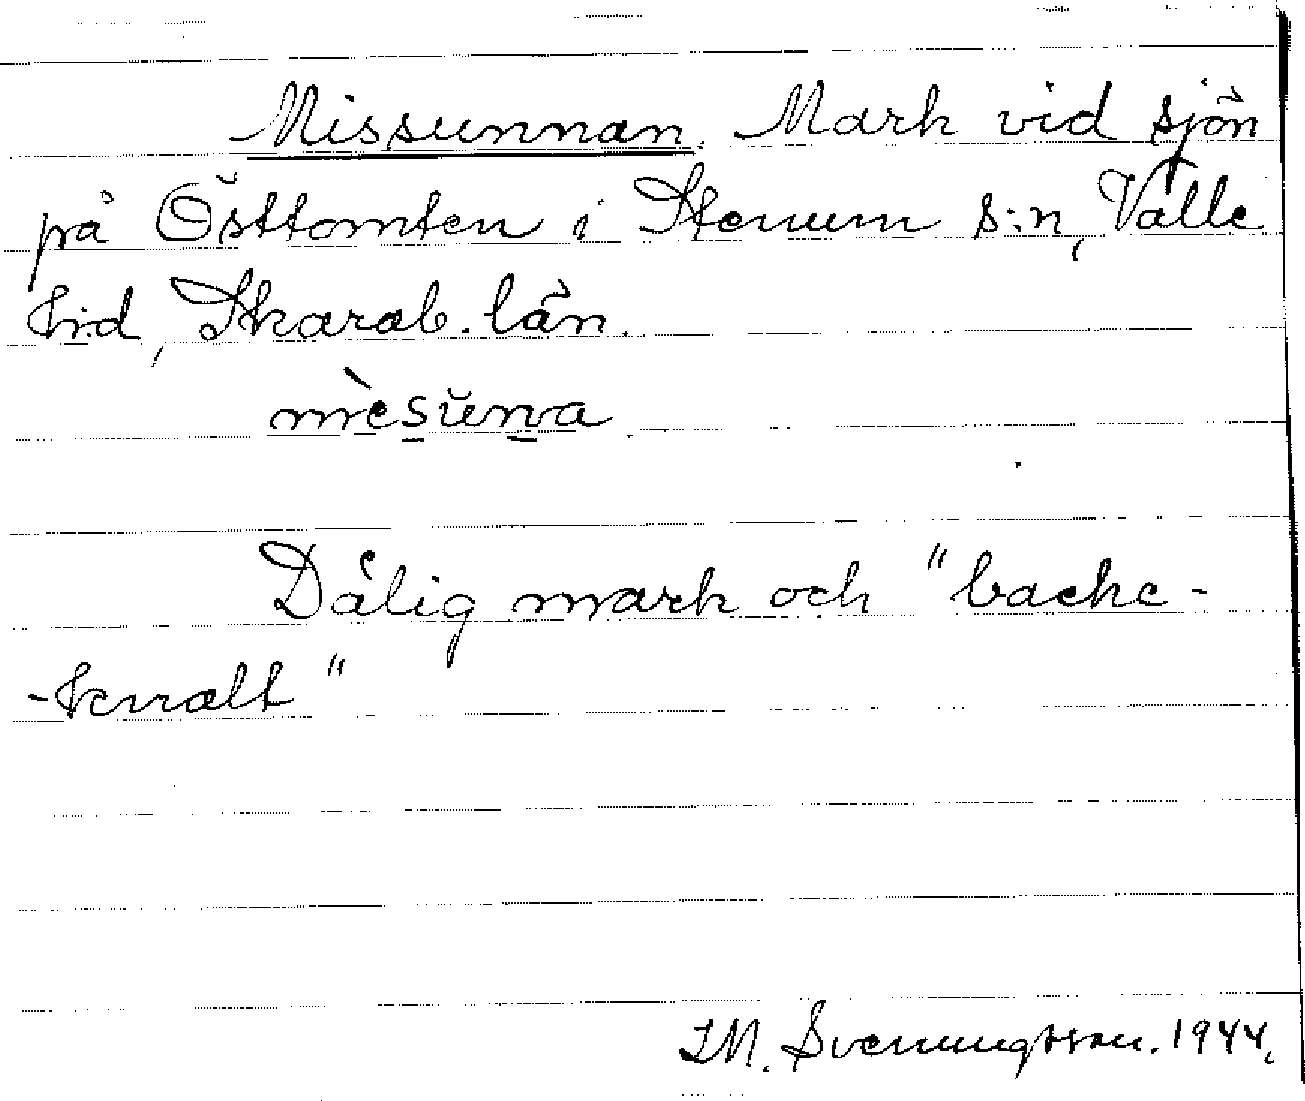 Missunnan. Mark vid sjön
på Östtomten i Stenum s:n, Valle
hrd, Skarab. län.
mèsŭna
Dålig mark och "backe-
-kuralt"
I.M. Svenungsson. 1944.